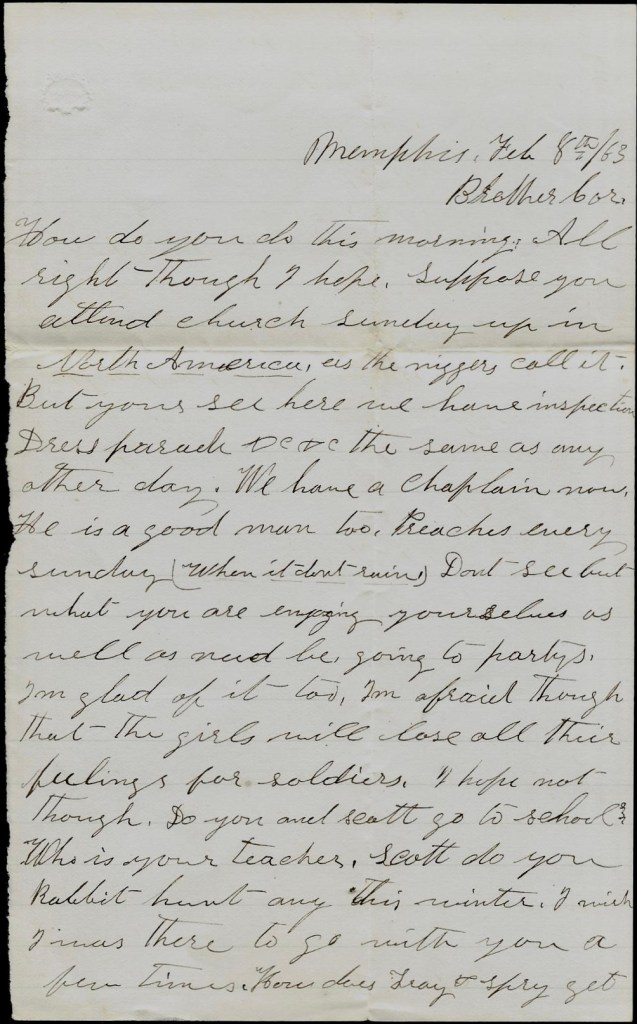 Memphis, Feb 8th/63
Brother Cor.
How do you do this morning. All
right though I hope. Suppose you
attend church sunday up in
North America, as the niggers call it.
But you see here we have inspection
Dress parade &c &c the same as any
other day. We have a Chaplain now.
He is a good man too. Preaches every
sunday (When it dont rain.) Dont see but
what you are enjoying yourselves as
well as need be, going to partys.
I'm glad of it too, I'm afraid though
that the girls will lose all their
feelings for soldiers. I hope not
though. Do you and scott go to school?
Who is your teacher. Scott do you
Rabbit hunt any this winter. I wish
I was there to go with you a
few times. How does Tray & Spry get